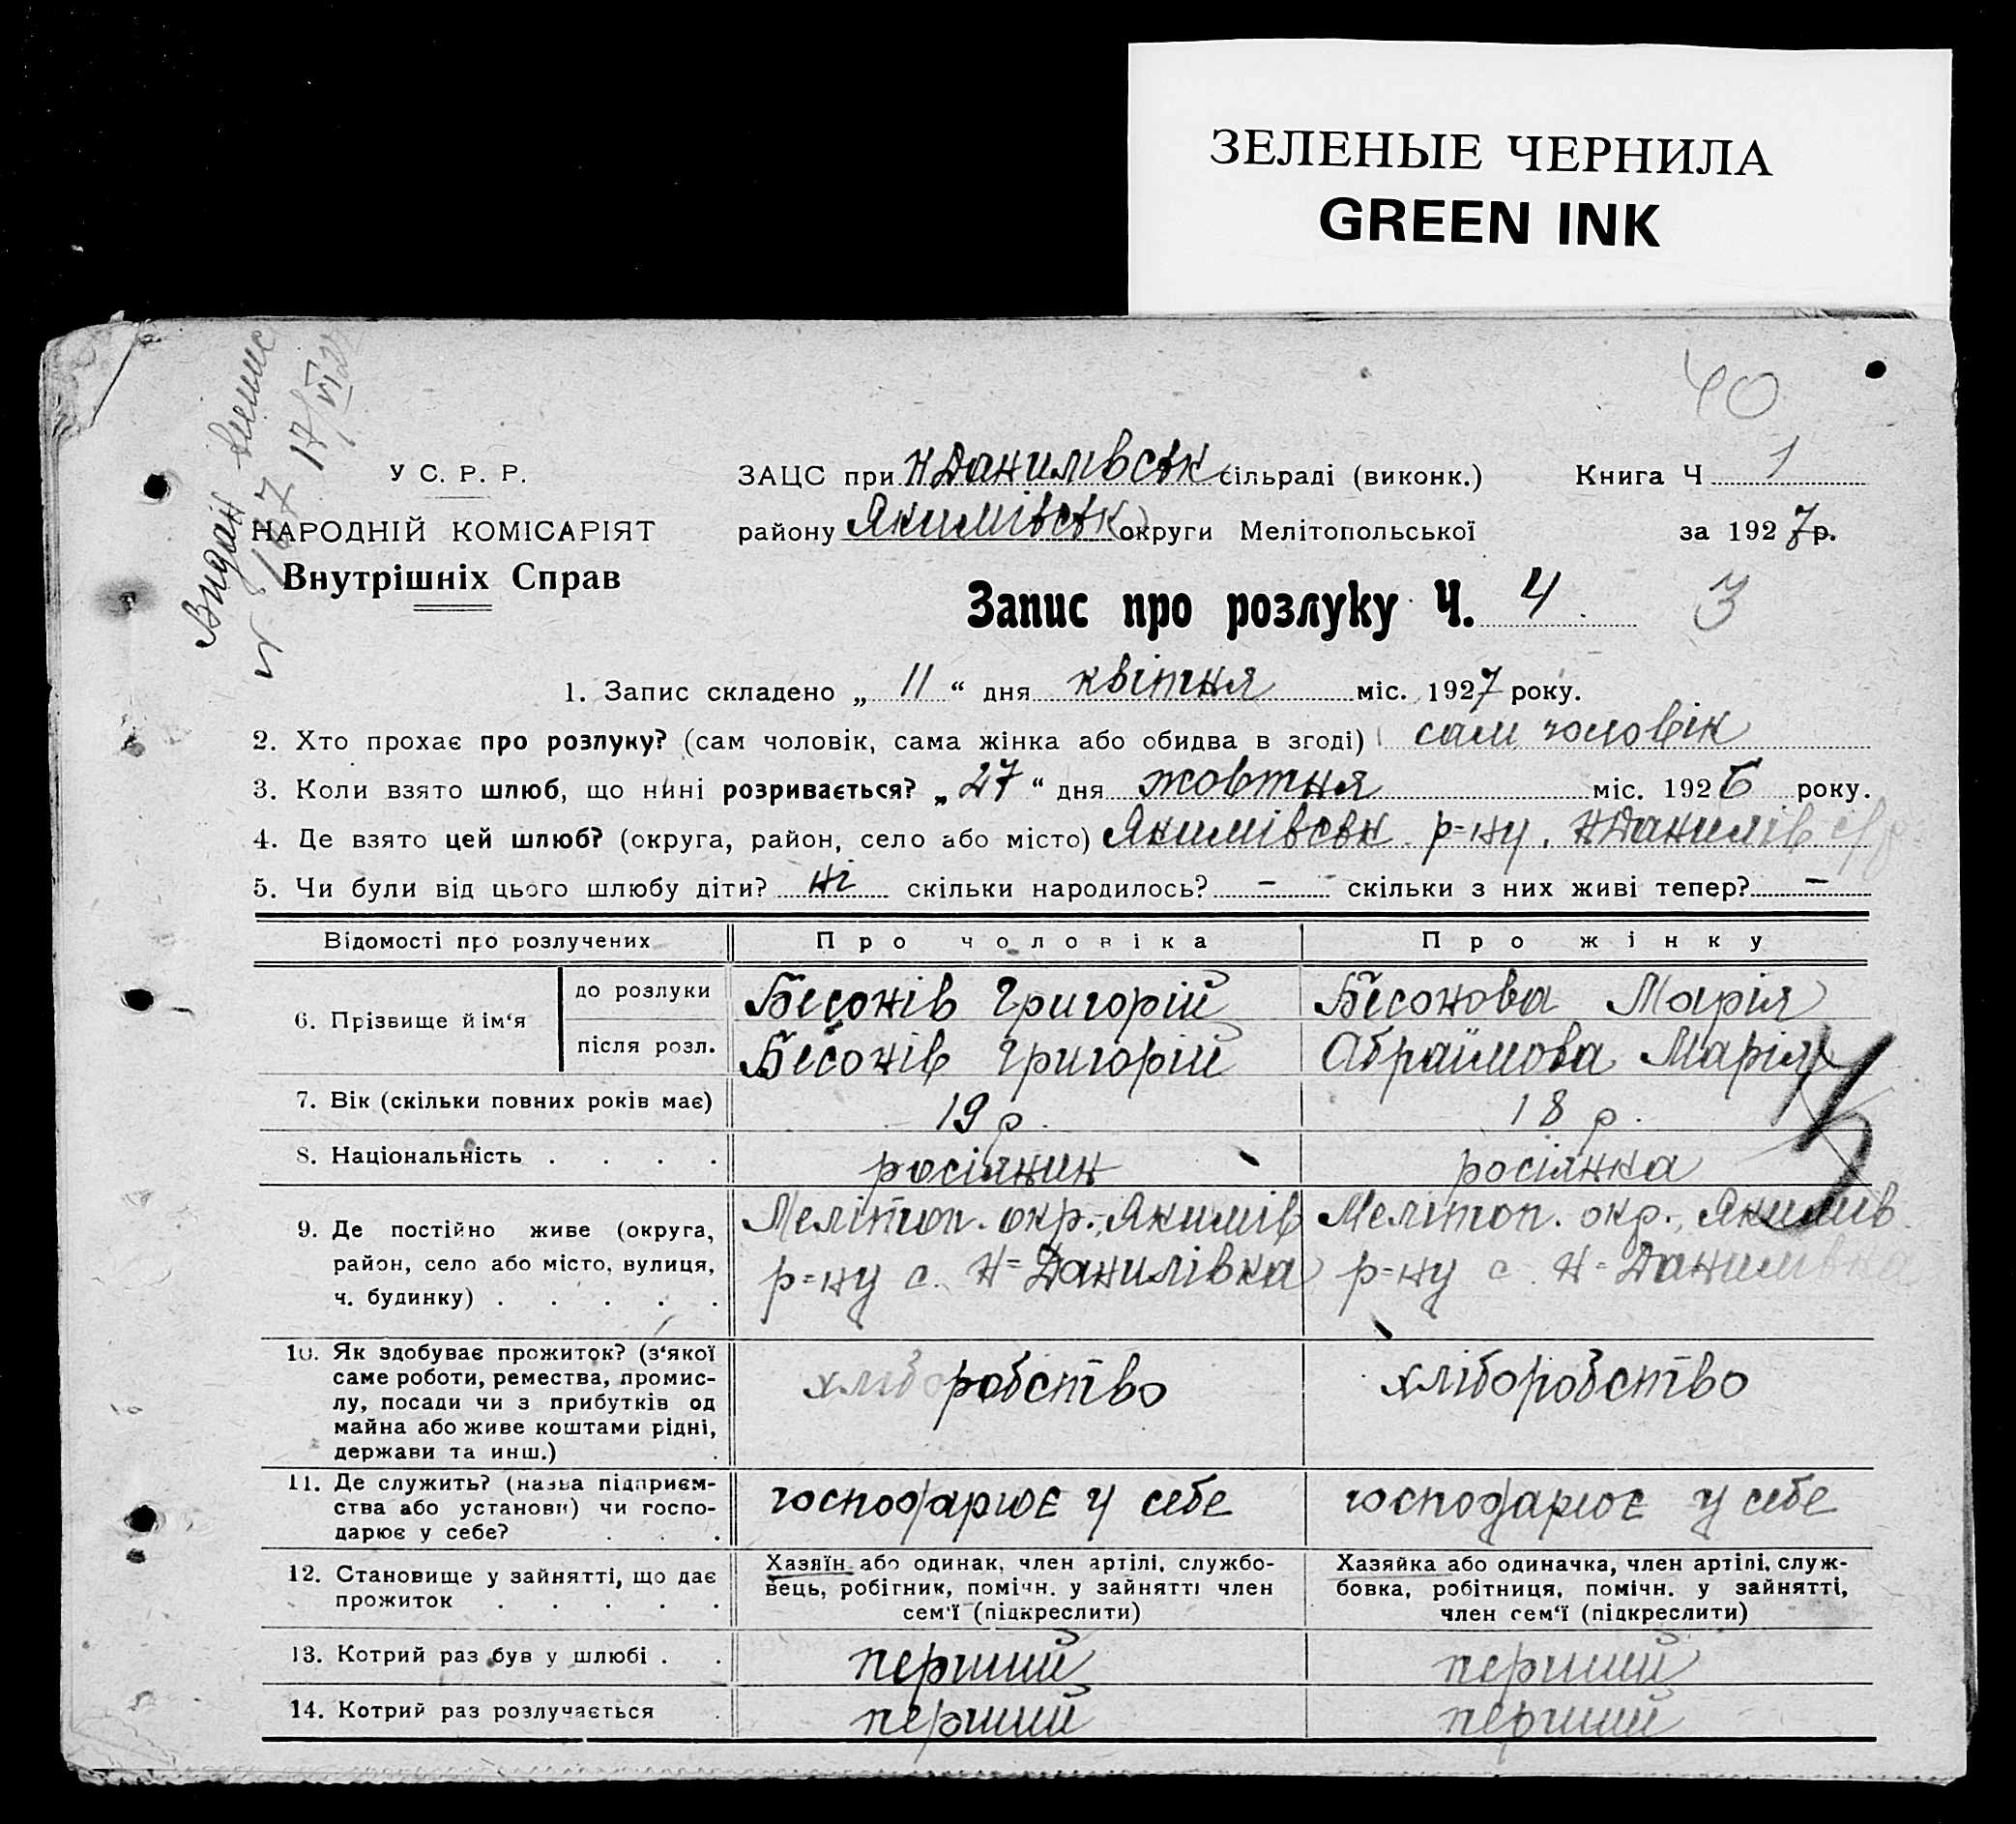 ЗЕЛЕНЫЕ ЧЕРНИЛА
GREEN INK
40
Видан
У С. Р. Р.
НАРОДНІЙ КОМІСАРІЯТ
Внутрішніх Справ
ЗАЦС при Н Данилівськ сільраді (виконк.)
району Якимівськ округи Мелітопольської
Книга Ч 1
за 1927 р.
Запис про розлуку Ч. 4
3
1. Запис складено „ 11 “ дня квітня міс. 1927 року.
2. Хто прохає про розлуку? (сам чоловік, сама жінка або обидва в згоді) сам чоловік
3. Коли взято шлюб, що нині розривається? „ 27 “ дня жовтня міс. 1926 року.
4. Де взято цей шлюб? (округа, район, село або місто) Якимівськ р=ну, Н Данилів с/р
5. Чи були від цього шлюбу діти? ні скільки народилось? - скільки з них живі тепер? -
Відомості про розлучених Про чоловіка Про жінку
6. Прізвище й ім‘я
до розлуки Бесонів Григорій Бесонова Марія
після розл. Бесонів Григорій Абраімова Марія
7. Вік (скільки повних років має) 19 р. 18 р.
8. Національність . . . . росіянин росіянка
9. Де постійно живе (округа, район, село або місто, вулиця, ч. будинку) . . . . .
Мелітоп. окр., Якимів
р=ну с. Н=Данилівка
Мелітоп. окр., Якимів.
р=ну с. Н=Данилівка
10. Як здобуває прожиток? (з‘якої
саме роботи, ремества, промис-
лу, посади чи з прибутків од
майна або живе коштами рідні,
держави та инш.) .
хліборобство хліборобство
11. Де служить? (назва підприєм-
ства або установи) чи госпо-
дарює у себе? . . .
господарює у себе господарює у себе
12. Становище у зайнятті, що дає
прожиток . . . . .
Хазяїн або одинак, член артілі, службо-
вець, робітник, помічн. у зайнятті член
сем‘ї (підкреслити)
Хазяйка або одиначка, член артілі, служ-
бовка, робітниця, помічн. у зайнятті,
член сем‘ї (підкреслити)
13. Котрий раз був у шлюбі . . перший перший
14. Котрий раз розлучається . перший перший